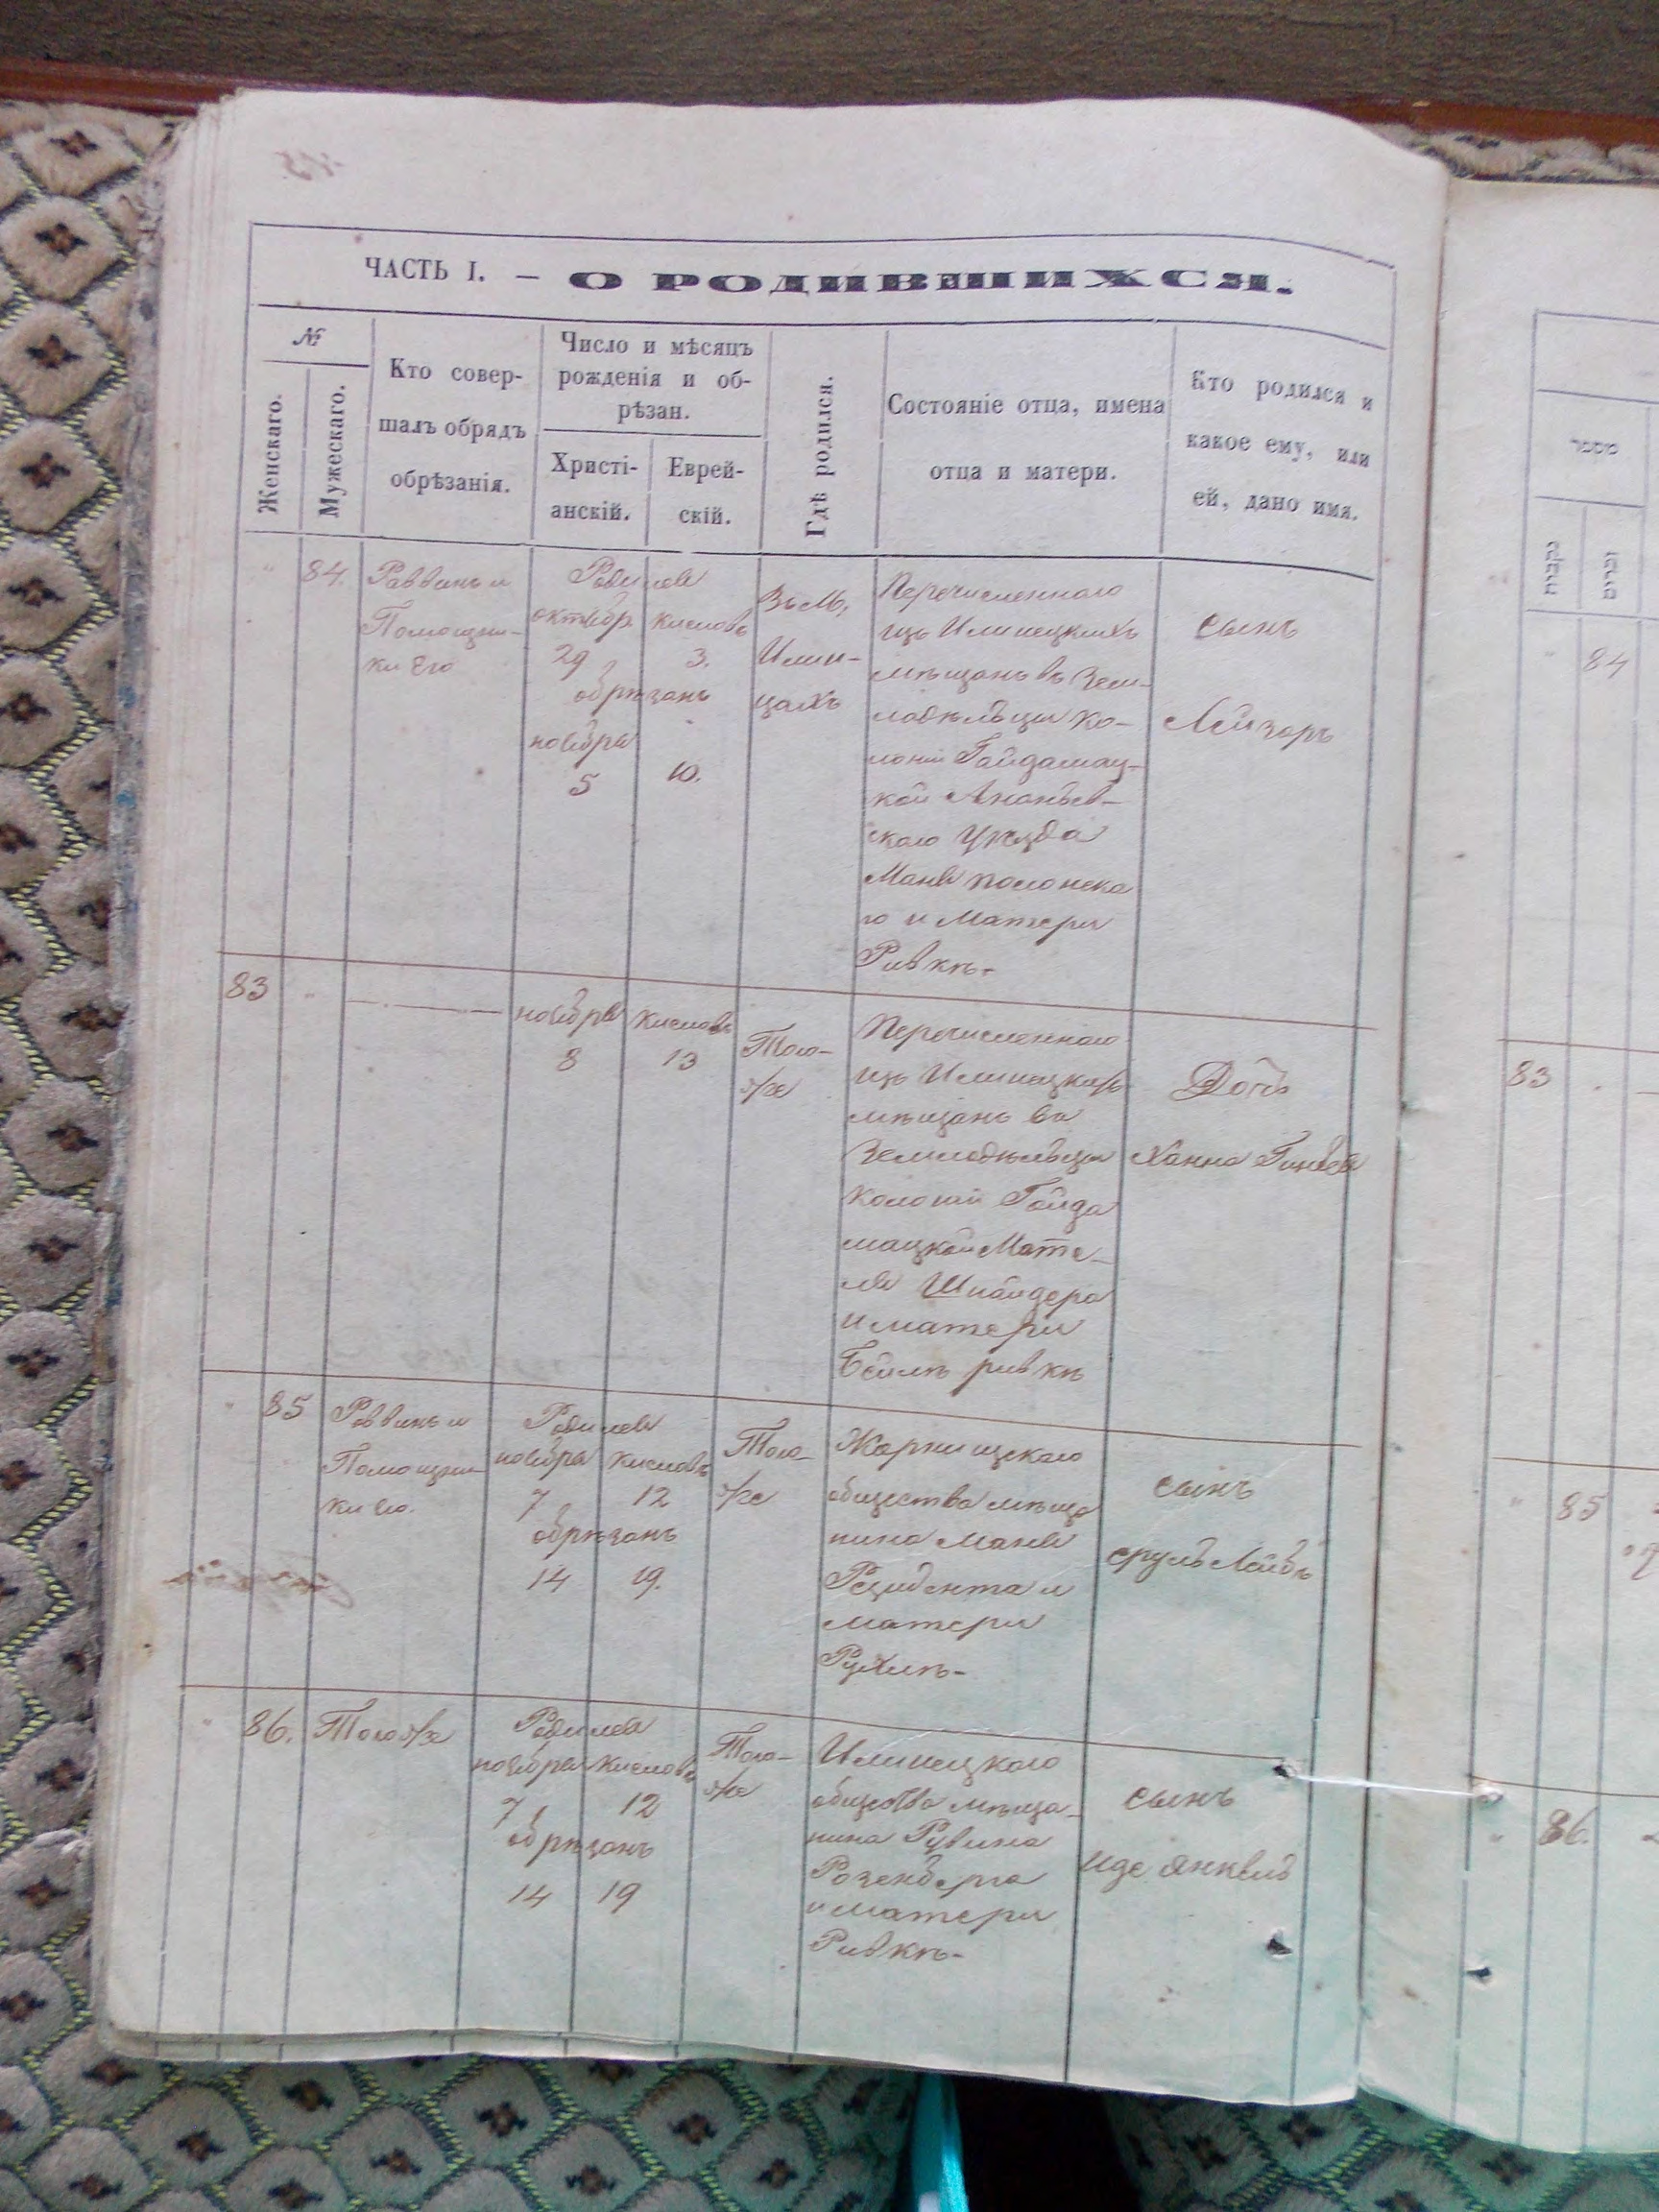 ЧАСТЬ I. — О РОДИВШИХСЯ.
№
Женскаго.
Мужескаго.
Кто совер-
шалъ обрядъ
обрѣзанія.
Число и мѣсяцъ
рожденія и об-
рѣзан.
Христі-
анскій.
Еврей-
скій.
Гдѣ родился.
Состояніе отца, имена
отца и матери.
Кто родился и
какое ему, или
ей, дано имя.
" 84.
Раввинъ и
Помощни-
ки его
Родился
октябр. кислевъ
29 3.
обрѣзанъ
ноября
5 10.
Въ М,
Илин-
цахъ
Перечисленнаго
изъ Илинецкихъ
мѣщанъ въ Зем-
ладѣльци ко-
лоніи Гайдамац-
кой Ананьев-
скаго уѣзда
Маня Полонска
го и Матери
Ривкѣ-
сынъ
Лейзаръ
83 "
ноября кислевъ
8 13
Того-
же
Перечисленнаго
изъ Илинецкихъ
мѣщанъ въ
Земладѣльци
колоніи Гайда
мацкой Моте-
ля Шнайдера
и матери
Бейлѣ ривкѣ
Дочь
Ханна
" 85
Раввинъ и
Помощни-
ки его.
Родился
ноября кислевъ
7 12
обрѣзанъ
14 19.
Того-
же
Жорнищскаго
общества мѣща
нина Маня
Резидента и
матери
Рухлѣ-
сынъ
сруль Лейбъ
" 86.
Того же
Родился
ноября кислевъ
7 12
обрѣзанъ
14 19
Того-
же
Илинецкаго
общества мѣща-
нина Рувина
Розенберга
и матери
Ривкѣ-
сынъ
Иде Янкель
" 84
83
" 85
" 86.